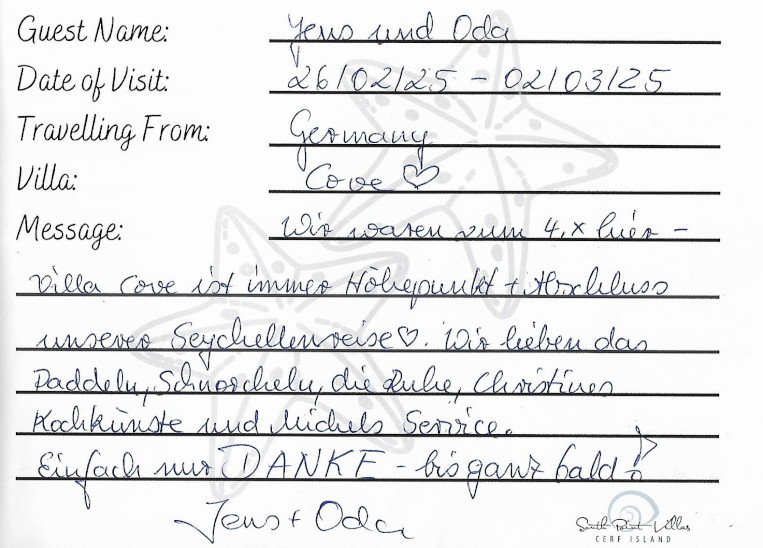 Guest Name: Jens und Oda
Date of Visit: 26/02/25 - 02/03/25
Travelling From: Germany
Villa: Cove ♡
Message: Wir waren zum 4.x hier -
Villa Cove ist immer Höhepunkt + Abschluss
unserer Seychellenreise ♡. Wir lieben das
Paddeln, Schnorcheln, die Ruhe, Christines
Kochkünste und Michels Service.
Einfach nur DANKE - bis ganz bald!
Jens + Oda
South Point Villas
CERF ISLAND